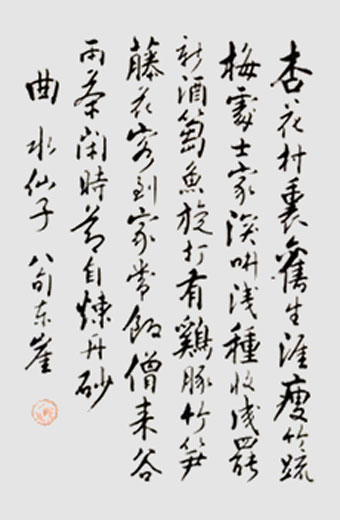 杏花村裏舊生涯瘦竹疏
梅處士家深耕浅種收成罷
新酒篘魚旋打有鷄豚竹笋
藤花客到家常飯僧来谷
雨茶闲時节自煉丹砂
曲水仙子 八旬东崖